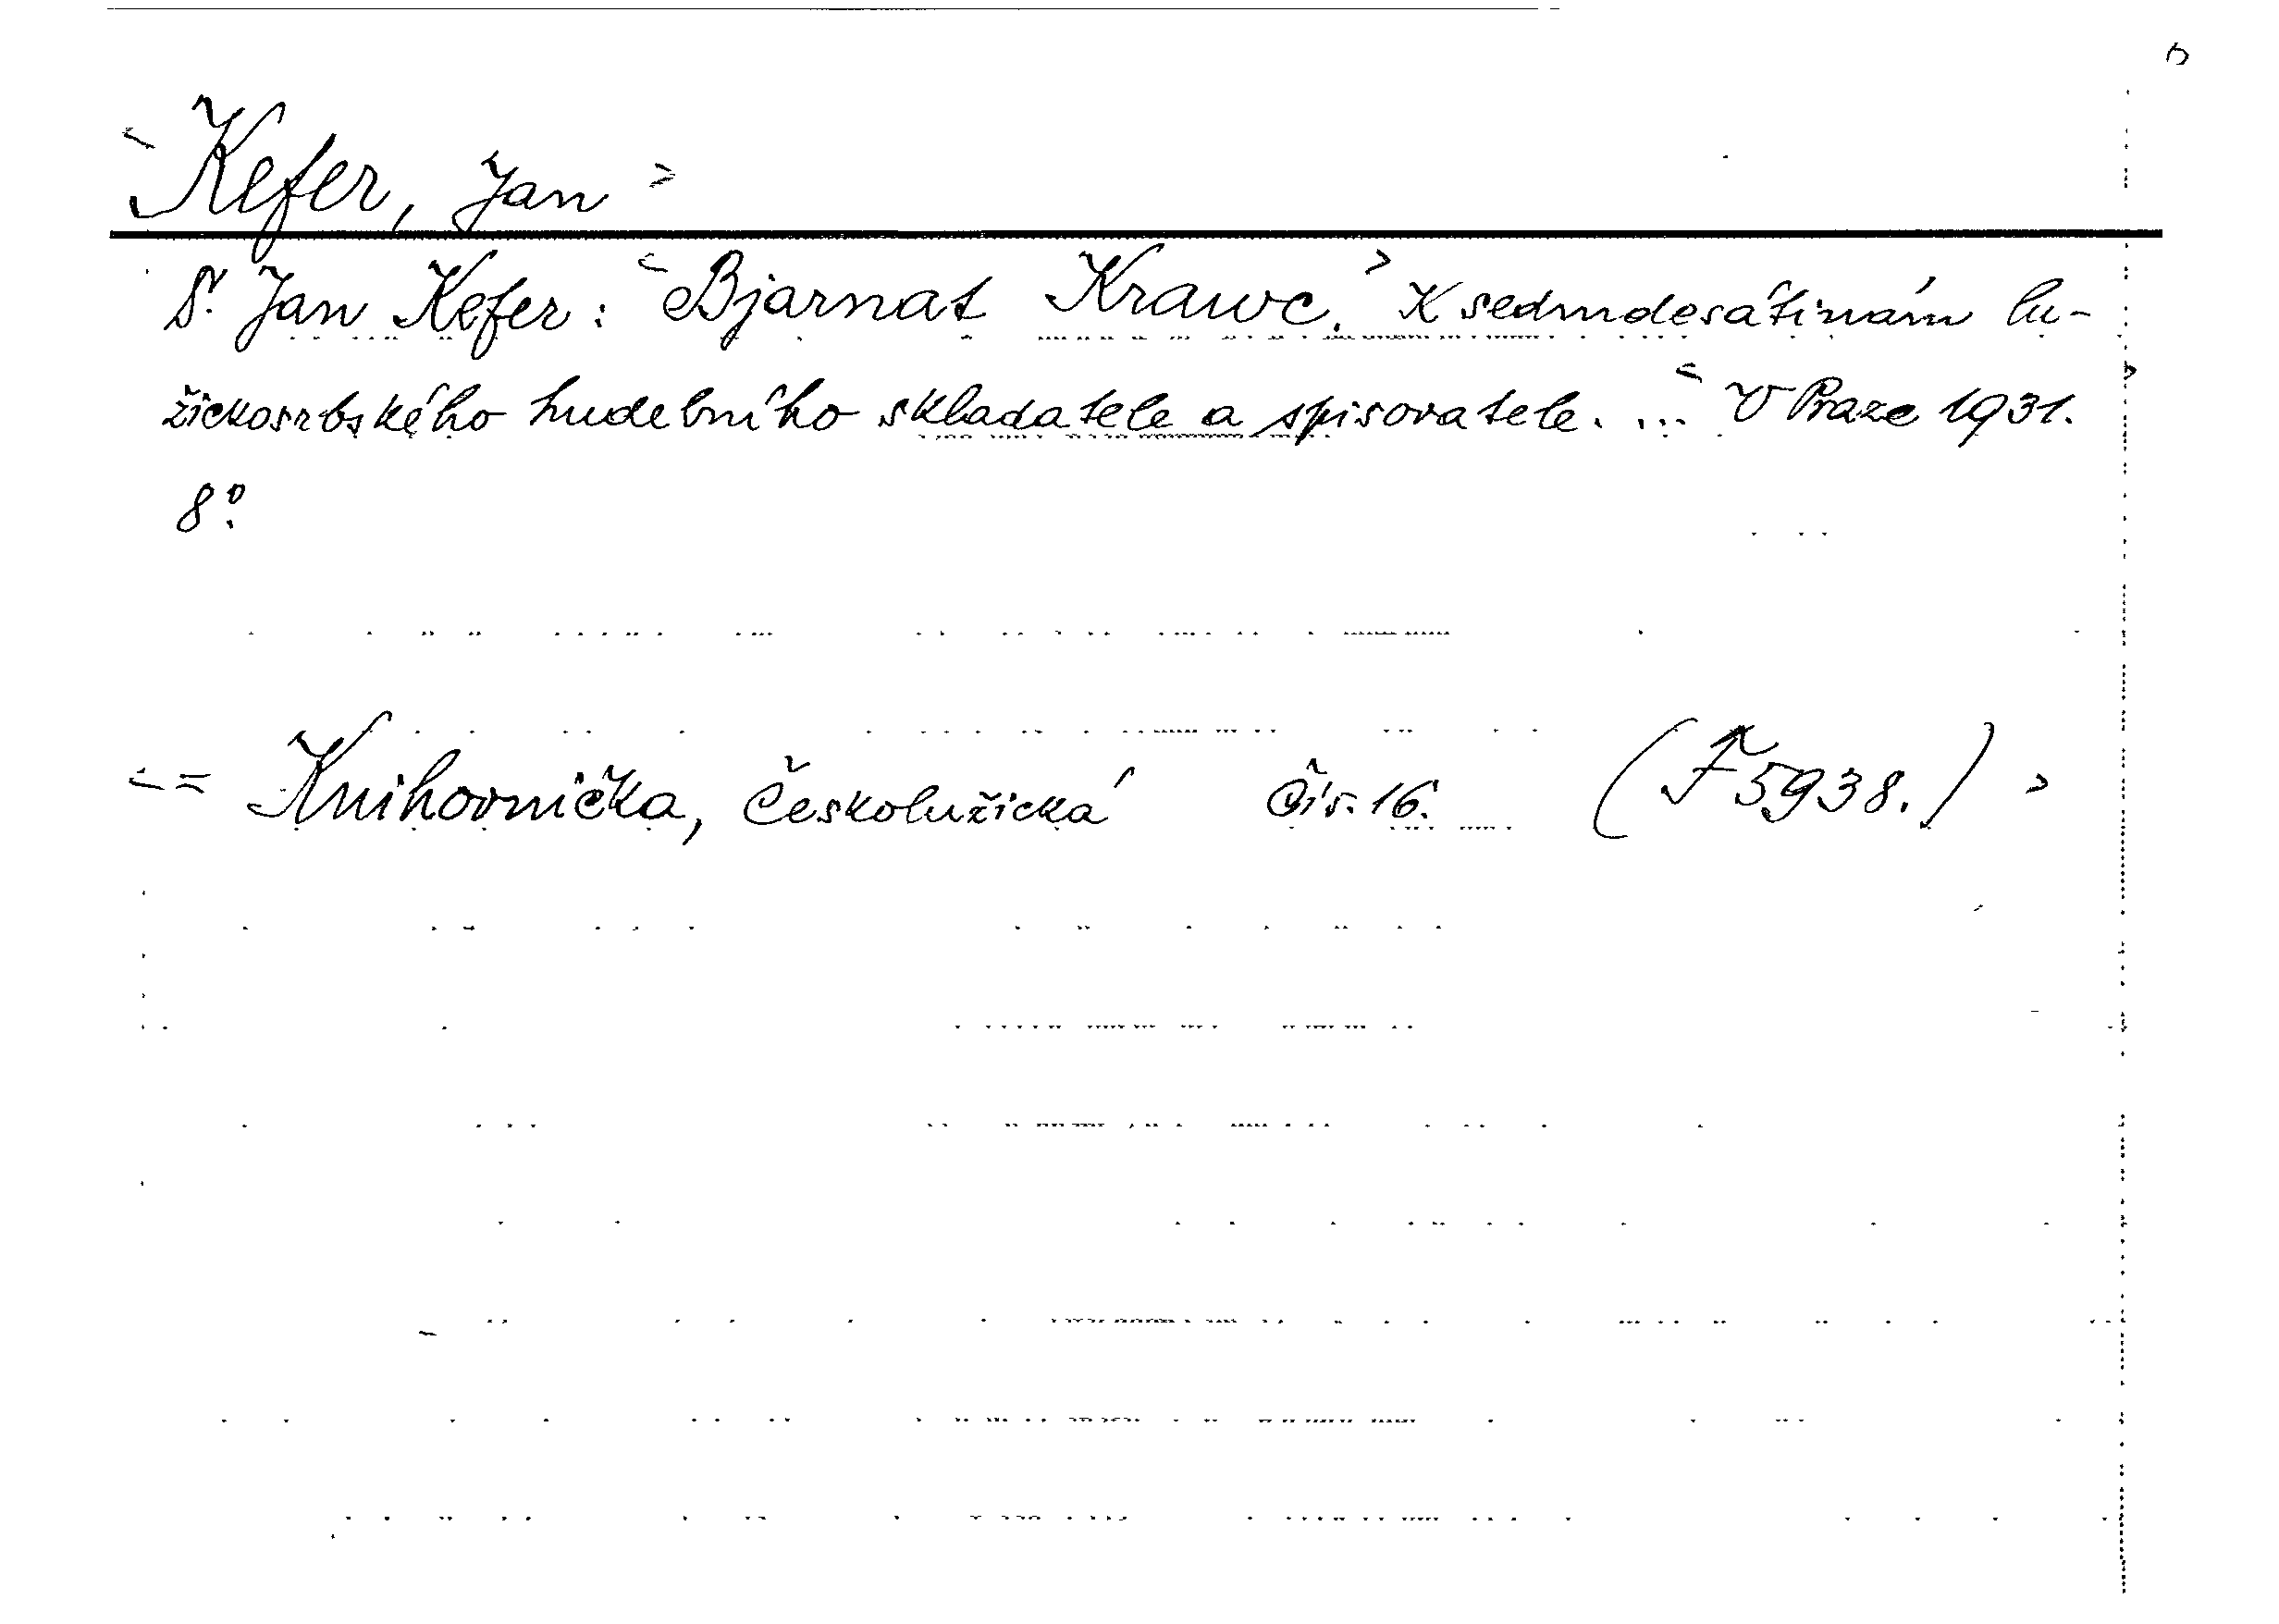 <Kefer, Jan>
Dr. Jan Kefer: <Bjarnat Krawc.> K sedmdesátinám lu-
žickosrbského hudebního skladatele a spisovatele. ... <V Praze 1931.>
8º.
<= Knihovnička, Českolužická Čís. 16. (F 5938.)>